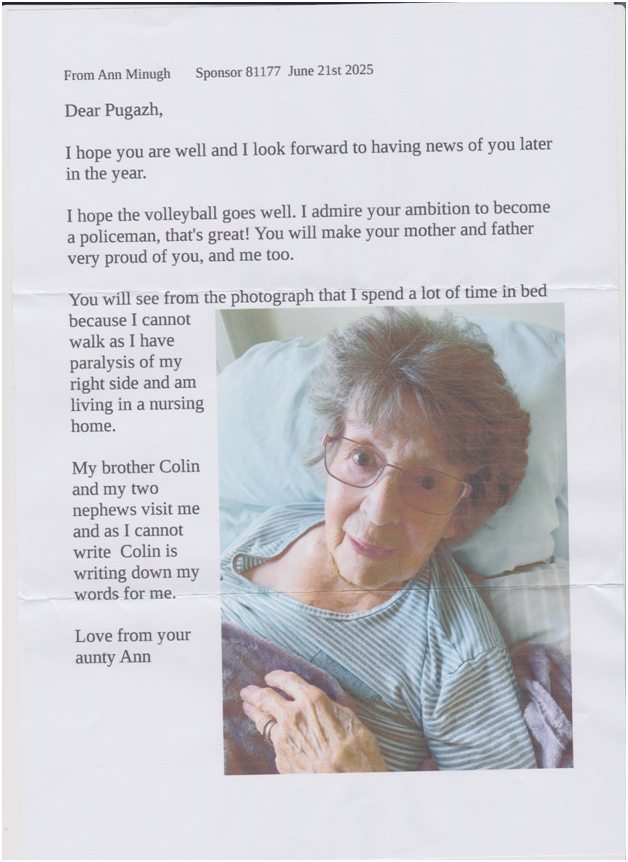 From Ann Minugh Sponsor 81177 June 21st 2025
Dear Pugazh,
I hope you are well and I look forward to having news of you later
in the year.
I hope the volleyball goes well. I admire your ambition to become
a policeman, that's great! You will make your mother and father
very proud of you, and me too.
You will see from the photograph that I spend a lot of time in bed
because I cannot
walk as I have
paralysis of my
right side and am
living in a nursing
home.
My brother Colin
and my two
nephews visit me
and as I cannot
write Colin is
writing down my
words for me.
Love from your
aunty Ann